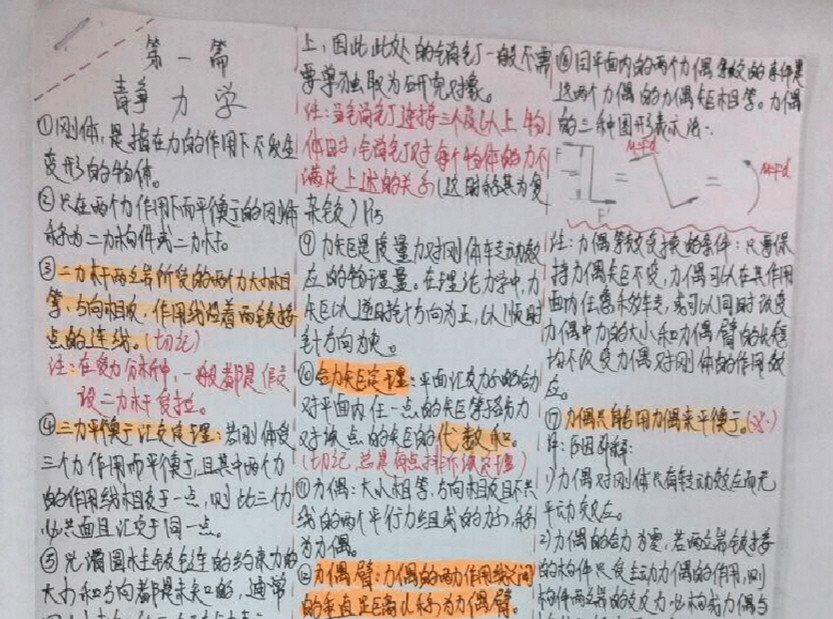 第一篇
静力学
①刚体,是指在力的作用下不发生
变形的物体。
②只在两个力作用下而平衡的刚体
称为二力构件或二力杆。
③二力杆两端所受的两个力大小相
等、方向相反,作用线沿着两铰接
点的连线。(切记)
注:在受力分析中,一般都是假
设二力杆受拉。
④三力平衡汇交定理:若刚体受
三个力作用而平衡,且其中两个力
的作用线相交于一点,则此三个力
必共面且汇交于同一点。
⑤光滑圆柱铰链的约束力的
大小和方向都是未知的,通常
上,因此此处的销钉一般不需
要单独取为研究对象。
注:当销钉连接三个及以上物
体时,销钉对每个物体的力不
满足上述的关系(这时称其为复
杂铰)
⑨力矩是度量力对刚体转动效
应的物理量。在理论力学中,力
矩以逆时针方向为正,以顺时
针方向为负。
⑩合力矩定理:平面汇交力系的合力
对平面内任一点的矩等于各分力
对该点的矩的代数和。
⑪力偶:大小相等,方向相反且不共
线的两个平行力组成的力系,称
为力偶。
⑫力偶臂:力偶的两力作用线之间
的垂直距离d称为力偶臂。
同平面内的两个力偶等效的条件是
这两个力偶的力偶矩相等。力偶
的三种图形表示法:
F
F'
M=Fd
M=Fd
注:力偶等效变换的条件:只要保
持力偶矩不变,力偶可以在其作用
面内任意移转,或可以同时改变
力偶中力的大小和力偶臂的长短
均不改变力偶对刚体的作用效
应。
力偶只能用力偶来平衡。
1)力偶对刚体只有转动效应而无
平动效应。
2)力偶的合力为零,若两端铰接
的构件只受主动力偶的作用,则
构件两端的约束力必构成力偶与